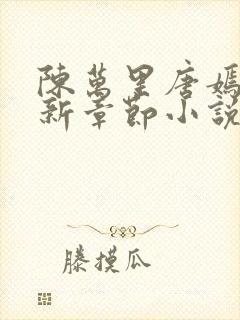 陳萬里唐嫣
新章節小說
滕摸瓜